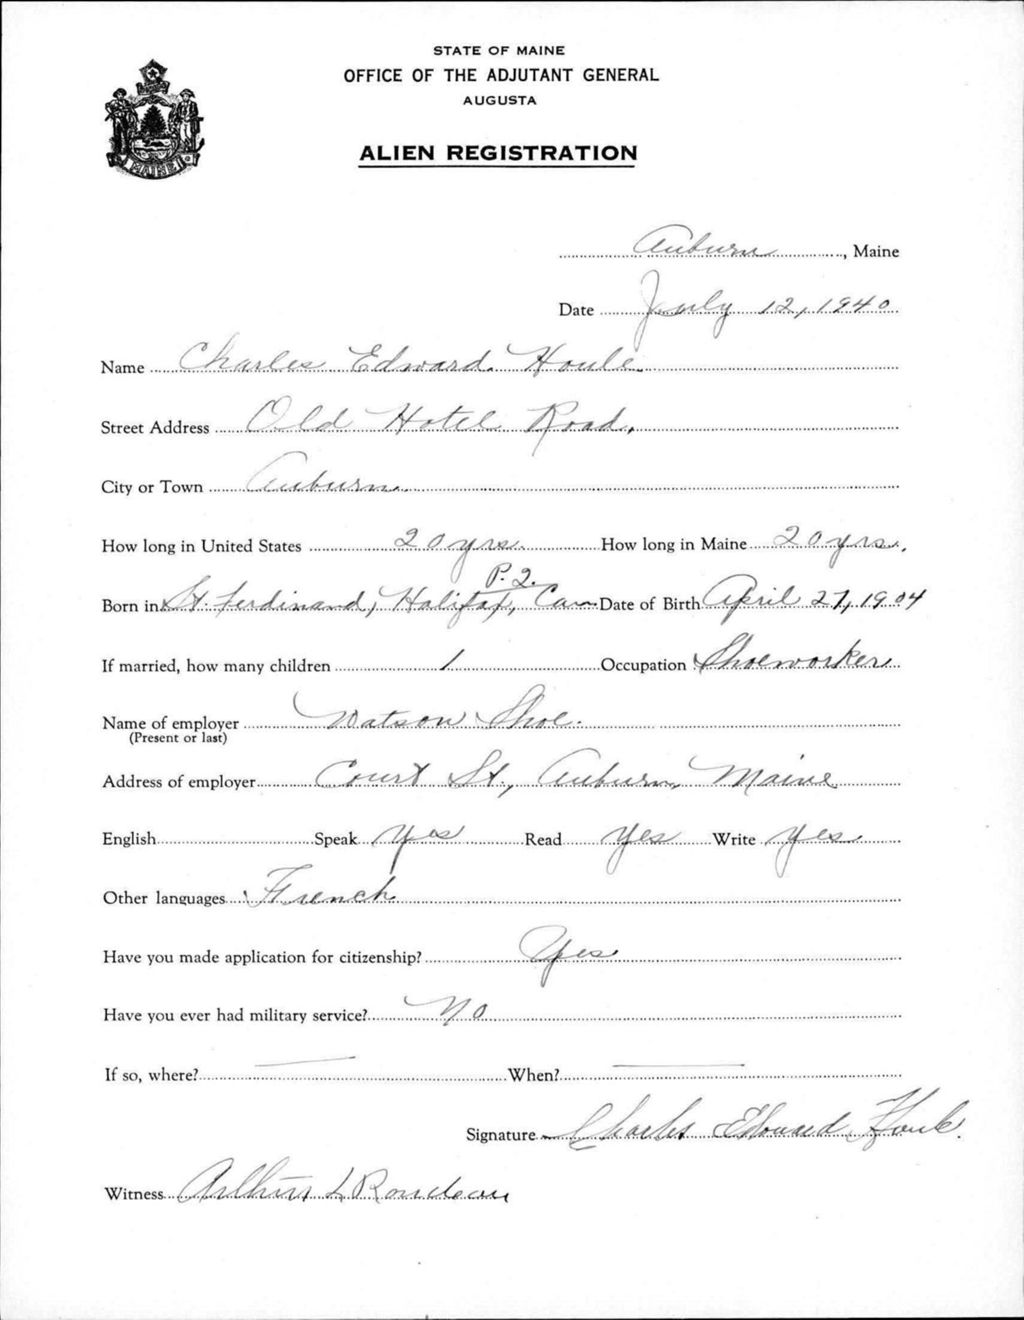 STATE OF MAINE
OFFICE OF THE ADJUTANT GENERAL
AUGUSTA
ALIEN REGISTRATION
MAINE
Auburn, Maine
Date July 12, 1940
Name Charles Edward Houle
Street Address Old Hotel Road,
City or Town Auburn
How long in United States 20 yrs. How long in Maine 20 yrs.
P.Q.
Born in St. Ferdinand, Halifax, Can Date of Birth April 27, 1904
If married, how many children 1 Occupation Shoeworker
Name of employer Watson Shoe.
(Present or last)
Address of employer Court St., Auburn, Maine
English Speak Yes Read Yes Write Yes
Other languages French
Have you made application for citizenship? Yes
Have you ever had military service? No
If so, where? — When? —
Signature Charles Edward Houle
Witness Arthur L Rondeau